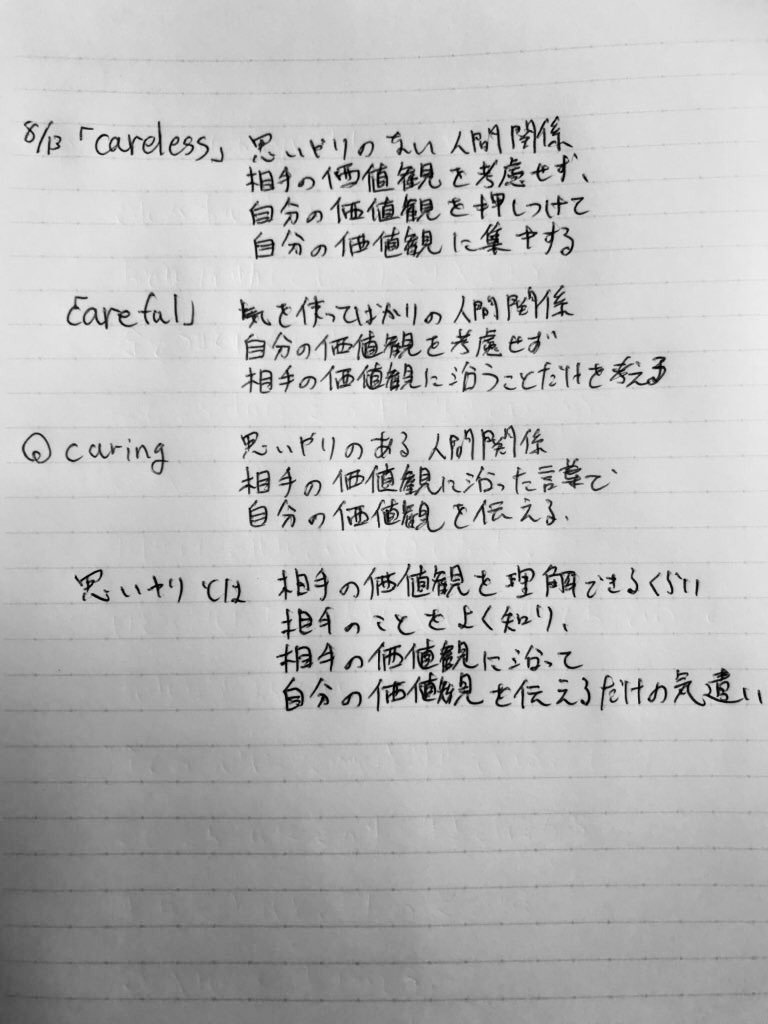 8/13 「careless」 思いやりのない人間関係
相手の価値観を考慮せず、
自分の価値観を押しつけて
自分の価値観に集中する
「careful」 気を使ってばかりの人間関係
自分の価値観を考慮せず
相手の価値観に沿うことだけを考える
◎ caring 思いやりのある人間関係
相手の価値観に沿った言葉で
自分の価値観を伝える、
思いやりとは 相手の価値観を理解できるくらい
相手のことをよく知り、
相手の価値観に沿って
自分の価値観を伝えるだけの気遣い